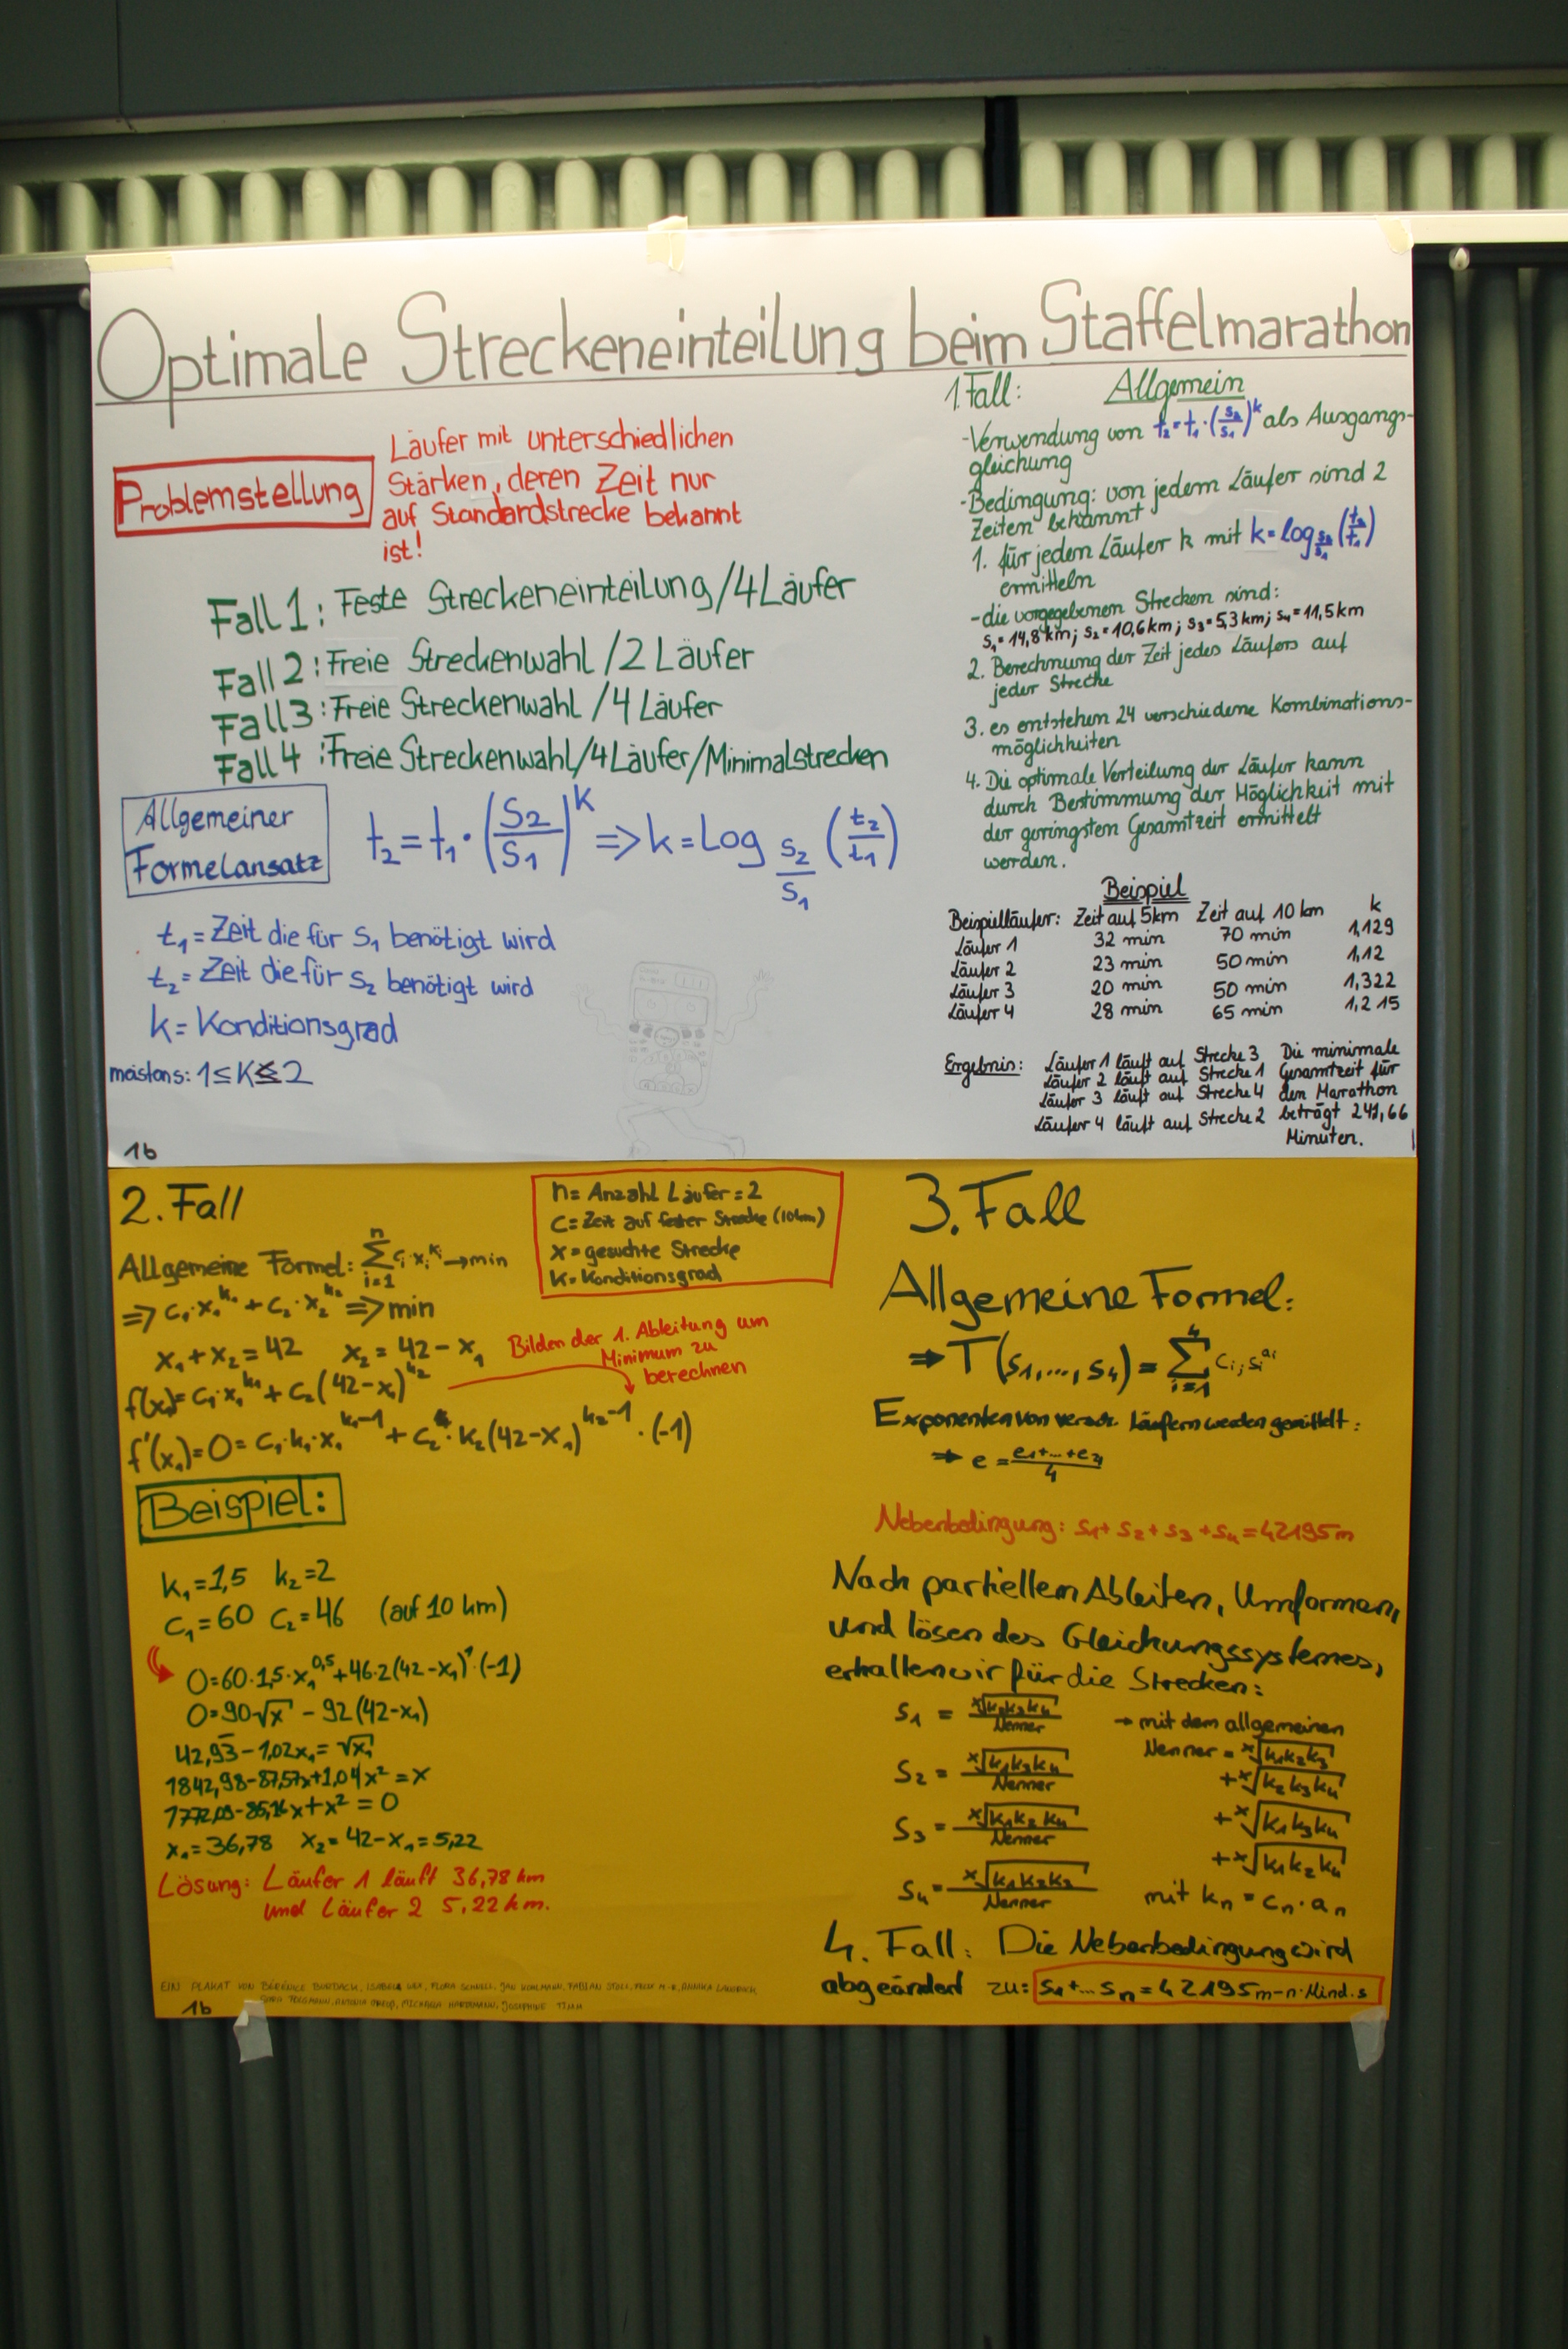 Optimale Streckeneinteilung beim Staffelmarathon
Problemstellung
Läufer mit unterschiedlichen
Stärken, deren Zeit nur
auf Standardstrecke bekannt
ist!
Fall 1: Feste Streckeneinteilung/4 Läufer
Fall 2: Freie Streckenwahl/2 Läufer
Fall 3: Freie Streckenwahl/4 Läufer
Fall 4: Freie Streckenwahl/4 Läufer/Minimalstrecken
Allgemeiner
Formelansatz
t₂ = t₁ · (S₂/S₁)^k ⇒ k = Log_{S₂/S₁} (t₂/t₁)
t₁ = Zeit die für S₁ benötigt wird
t₂ = Zeit die für S₂ benötigt wird
k = Konditionsgrad
meistens: 1 ≤ K ≤ 2
1b
1. Fall: Allgemein
- Verwendung von t₂ = t₁ · (S₂/S₁)^k als Ausgangs-
gleichung
- Bedingung: von jedem Läufer sind 2
Zeiten bekannt
1. für jeden Läufer k mit k = log_{S₂/S₁} (t₂/t₁)
ermitteln
- die vorgegebenen Strecken sind:
S₁ = 14,8 km; S₂ = 10,6 km; S₃ = 5,3 km; S₄ = 11,5 km
2. Berechnung der Zeit jedes Läufers auf
jeder Strecke
3. es entstehen 24 verschiedene Kombinations-
möglichkeiten
4. Die optimale Verteilung der Läufer kann
durch Bestimmung der Möglichkeit mit
der geringsten Gesamtzeit ermittelt
werden.
Beispiel
Beispielläufer: Zeit auf 5km Zeit auf 10 km k
Läufer 1 32 min 70 min 1,129
Läufer 2 23 min 50 min 1,12
Läufer 3 20 min 50 min 1,322
Läufer 4 28 min 65 min 1,215
Ergebnis: Läufer 1 läuft auf Strecke 3 Die minimale
Läufer 2 läuft auf Strecke 1 Gesamtzeit für
Läufer 3 läuft auf Strecke 4 den Marathon
Läufer 4 läuft auf Strecke 2 beträgt 241,66
Minuten.
2. Fall
n = Anzahl Läufer = 2
C = Zeit auf fester Strecke (10km)
X = gesuchte Strecke
K = Konditionsgrad
Allgemeine Formel: ∑_{i=1}^{n} c_i · x_i^{k_i} → min
⇒ C₁ · X₁^{k₁} + C₂ · X₂^{k₂} ⇒ min
X₁ + X₂ = 42 X₂ = 42 - X₁
Bilden der 1. Ableitung um
Minimum zu
berechnen
f(x₁) = C₁ · X₁^{k₁} + C₂ (42-x₁)^{k₂}
f'(x₁) = 0 = C₁ · k₁ · X₁^{k₁-1} + C₂ · K₂ (42-X₁)^{k₂-1} · (-1)
Beispiel:
k₁ = 1,5 k₂ = 2
C₁ = 60 C₂ = 46 (auf 10 km)
0 = 60 · 1,5 · X₁^{0,5} + 46 · 2 (42-X₁)^1 · (-1)
0 = 90√x - 92 (42-x₁)
42,93 - 1,02x₁ = √x₁
1842,98 - 87,57x + 1,04x² = X
+ x² = 0
X₁ = 36,78 X₂ = 42 - X₁ = 5,22
Lösung: Läufer 1 läuft 36,78 km
und Läufer 2 5,22 km.
EIN PLAKAT VON
1b
3. Fall
Allgemeine Formel:
⇒ T(S₁,...,S₄) = ∑_{i=1}^{4} C_i, S_i^{a_i}
Exponenten von versch. Läufern werden gemittelt:
⇒ e = (e₁+...+e₄)/4
Nebenbedingung: S₁ + S₂ + S₃ + S₄ = 42195m
Nach partiellem Ableiten, Umformen,
und lösen des Gleichungssystemes,
erhalten wir für die Strecken:
S₁ = ˣ√(k₂k₃k₄) / Nenner → mit dem allgemeinen
S₂ = ˣ√(k₁k₃k₄) / Nenner Nenner = ˣ√(k₁k₂k₃)
+ ˣ√(k₂k₃k₄)
S₃ = ˣ√(k₁k₂k₄) / Nenner + ˣ√(k₁k₃k₄)
+ ˣ√(k₁k₂k₄)
S₄ = ˣ√(k₁k₂k₃) / Nenner mit k_n = C_n · a_n
4. Fall: Die Nebenbedingung wird
abgeändert zu: S₁+... S_n = 42195m - n · Mind.s